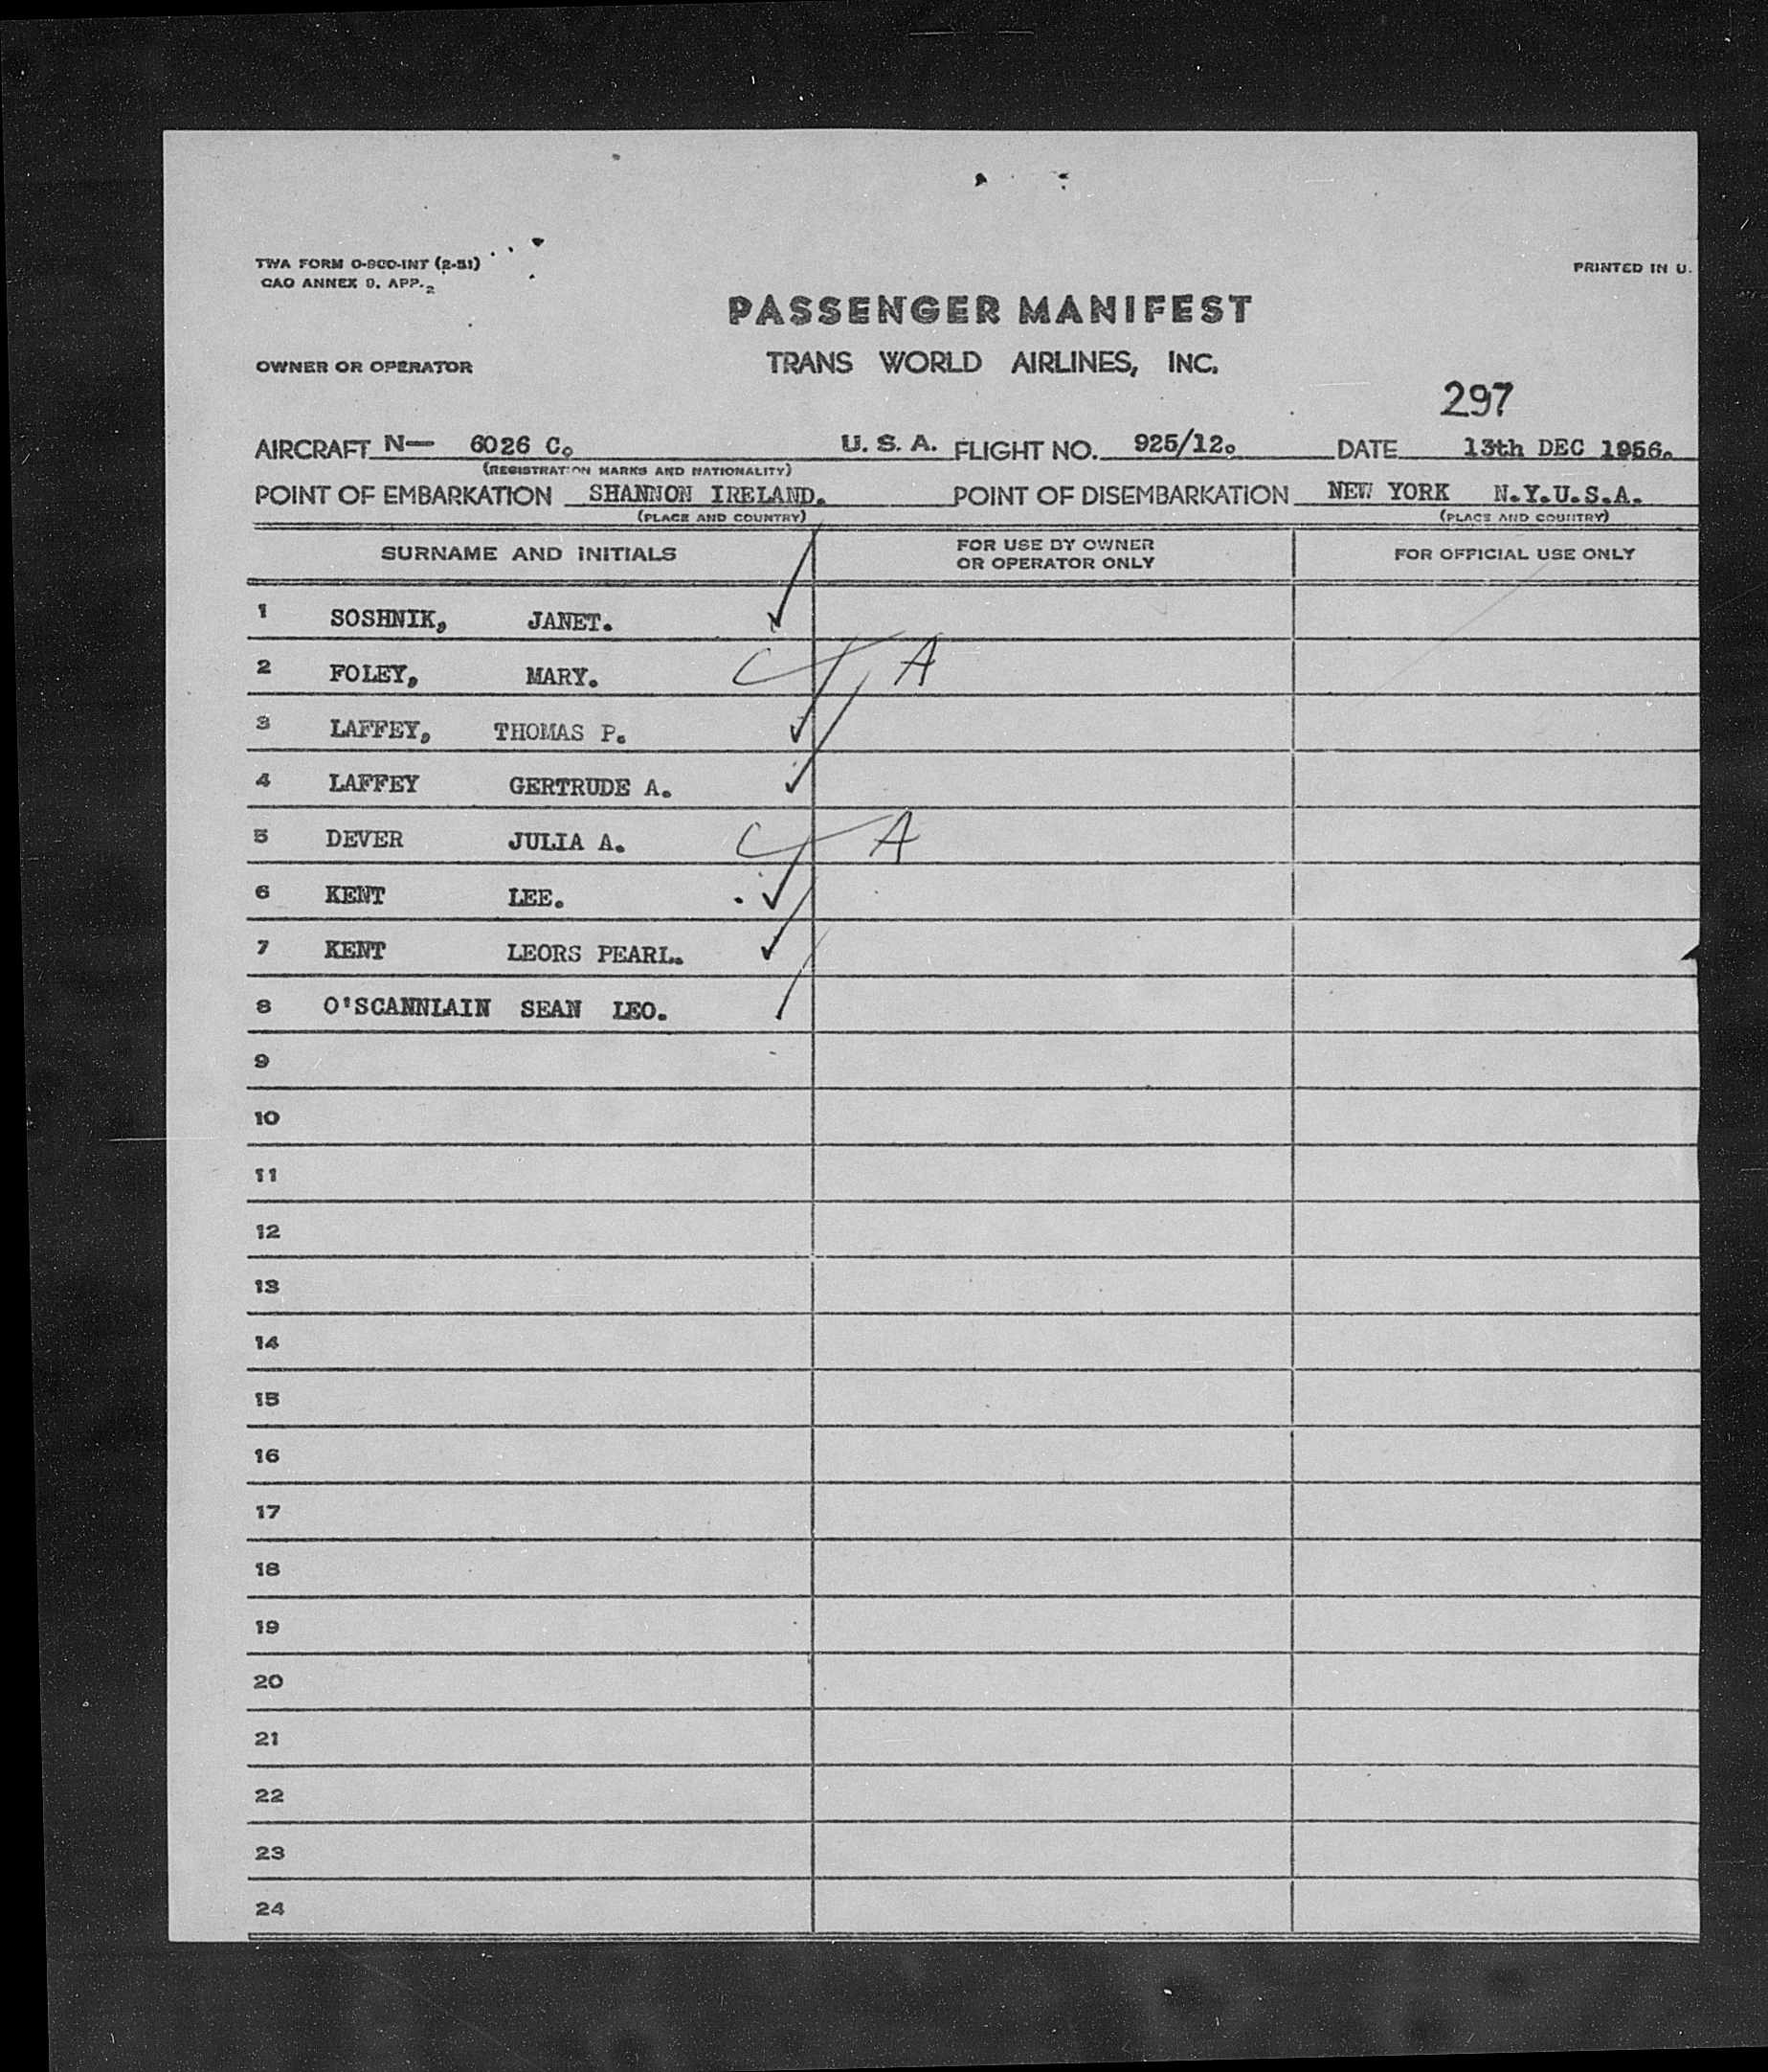 TWA FORM O-900-INT (2-51)
CAO ANNEX 9, APP. 2
PRINTED IN U.
PASSENGER MANIFEST
OWNER OR OPERATOR TRANS WORLD AIRLINES, INC.
297
AIRCRAFT N— 6026 C. U. S. A. FLIGHT NO. 925/12. DATE 13th DEC 1956.
(REGISTRATION MARKS AND NATIONALITY)
POINT OF EMBARKATION SHANNON IRELAND. POINT OF DISEMBARKATION NEW YORK N.Y.U.S.A.
(PLACE AND COUNTRY) (PLACE AND COUNTRY)
SURNAME AND INITIALS FOR USE BY OWNER OR OPERATOR ONLY FOR OFFICIAL USE ONLY
1 SOSHNIK, JANET. ✓
2 FOLEY, MARY. A
3 LAFFEY, THOMAS P. ✓
4 LAFFEY GERTRUDE A. ✓
5 DEVER JULIA A. A
6 KENT LEE. ✓
7 KENT LEORS PEARL. ✓
8 O'SCANNLAIN SEAN LEO.
9
10
11
12
13
14
15
16
17
18
19
20
21
22
23
24